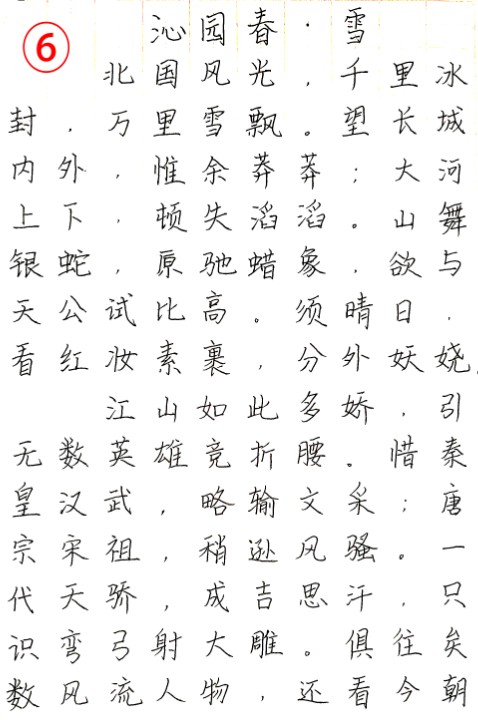 ⑥
沁园春·雪
北国风光，千里冰
封，万里雪飘。望长城
内外，惟余莽莽；大河
上下，顿失滔滔。山舞
银蛇，原驰蜡象，欲与
天公试比高。须晴日，
看红妆素裹，分外妖娆
江山如此多娇，引
无数英雄竞折腰。惜秦
皇汉武，略输文采；唐
宗宋祖，稍逊风骚。一
代天骄，成吉思汗，只
识弯弓射大雕。俱往矣
数风流人物，还看今朝